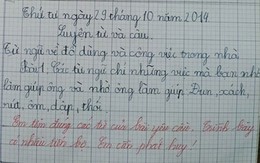 Thứ tư ngày 29 tháng 10 năm 2014
Luyện từ và câu.
Từ ngữ về đồ dùng và công việc trong nhà
Bài 1. Các từ ngữ chỉ những việc mà bạn nhỏ
làm giúp ông và nhờ ông làm giúp Đun, xách,
rút, ôm, dập, thổi
Em tìm đúng các từ của bài yêu cầu. Trình bày
có nhiều tiến bộ. Em cần phát huy!